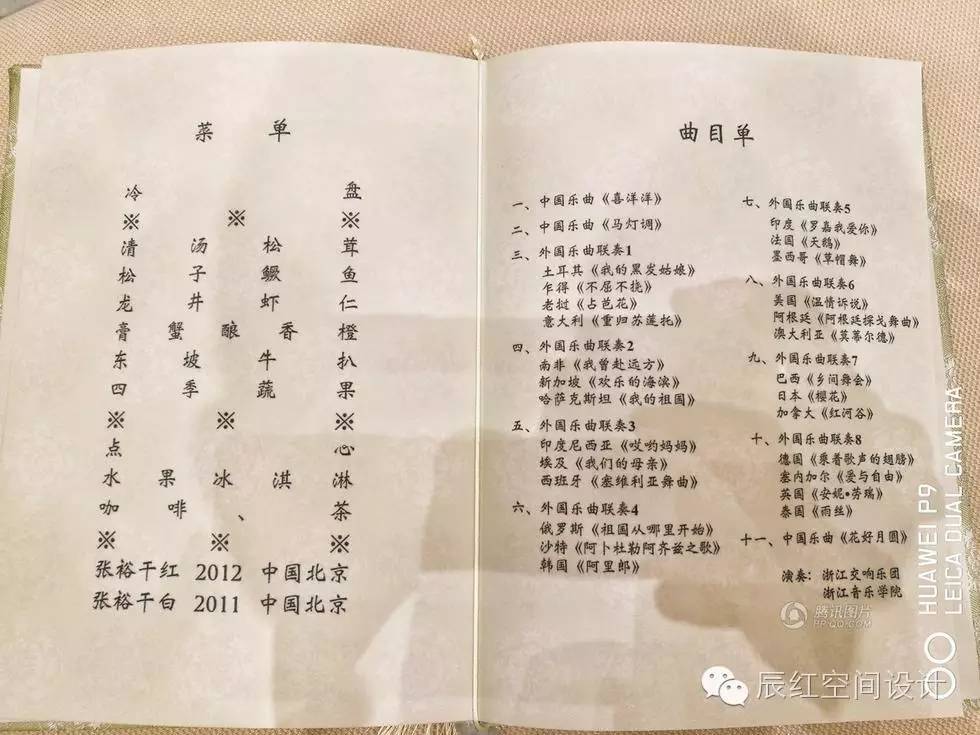 菜 单
冷 盘
※ ※ ※
清 汤 松 茸
松 子 鳜 鱼
龙 井 虾 仁
膏 蟹 酿 香 橙
东 坡 牛 扒
四 季 蔬 果
※ ※ ※
点 心
水 果 冰 淇 淋
咖 啡 、 茶
※ ※ ※
张裕干红 2012 中国北京
张裕干白 2011 中国北京
曲目单
一、中国乐曲《喜洋洋》
二、中国乐曲《马灯调》
三、外国乐曲联奏1
土耳其《我的黑发姑娘》
乍得《不屈不挠》
老挝《占芭花》
意大利《重归苏莲托》
四、外国乐曲联奏2
南非《我曾赴远方》
新加坡《欢乐的海滨》
哈萨克斯坦《我的祖国》
五、外国乐曲联奏3
印度尼西亚《哎哟妈妈》
埃及《我们的母亲》
西班牙《塞维利亚舞曲》
六、外国乐曲联奏4
俄罗斯《祖国从哪里开始》
沙特《阿卜杜勒阿齐兹之歌》
韩国《阿里郎》
七、外国乐曲联奏5
印度《罗嘉我爱你》
法国《天鹅》
墨西哥《草帽舞》
八、外国乐曲联奏6
美国《温情诉说》
阿根廷《阿根廷探戈舞曲》
澳大利亚《莫蒂尔德》
九、外国乐曲联奏7
巴西《乡间舞会》
日本《樱花》
加拿大《红河谷》
十、外国乐曲联奏8
德国《乘着歌声的翅膀》
塞内加尔《爱与自由》
英国《安妮•劳瑞》
泰国《雨丝》
十一、中国乐曲《花好月圆》
演奏：浙江交响乐团
浙江音乐学院
腾讯图片
PP.QQ.COM
辰红空间设计
HUAWEI P9
LEICA DUAL CAMERA